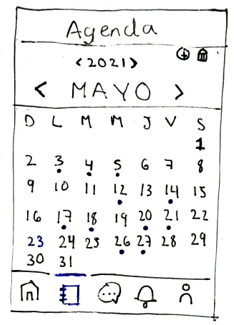 Agenda
<2021>
< MAYO >
D L M M J V S
1
2 3 4 5 6 7 8
9 10 11 12 13 14 15
16 17 18 19 20 21 22
23 24 25 26 27 28 29
30 31